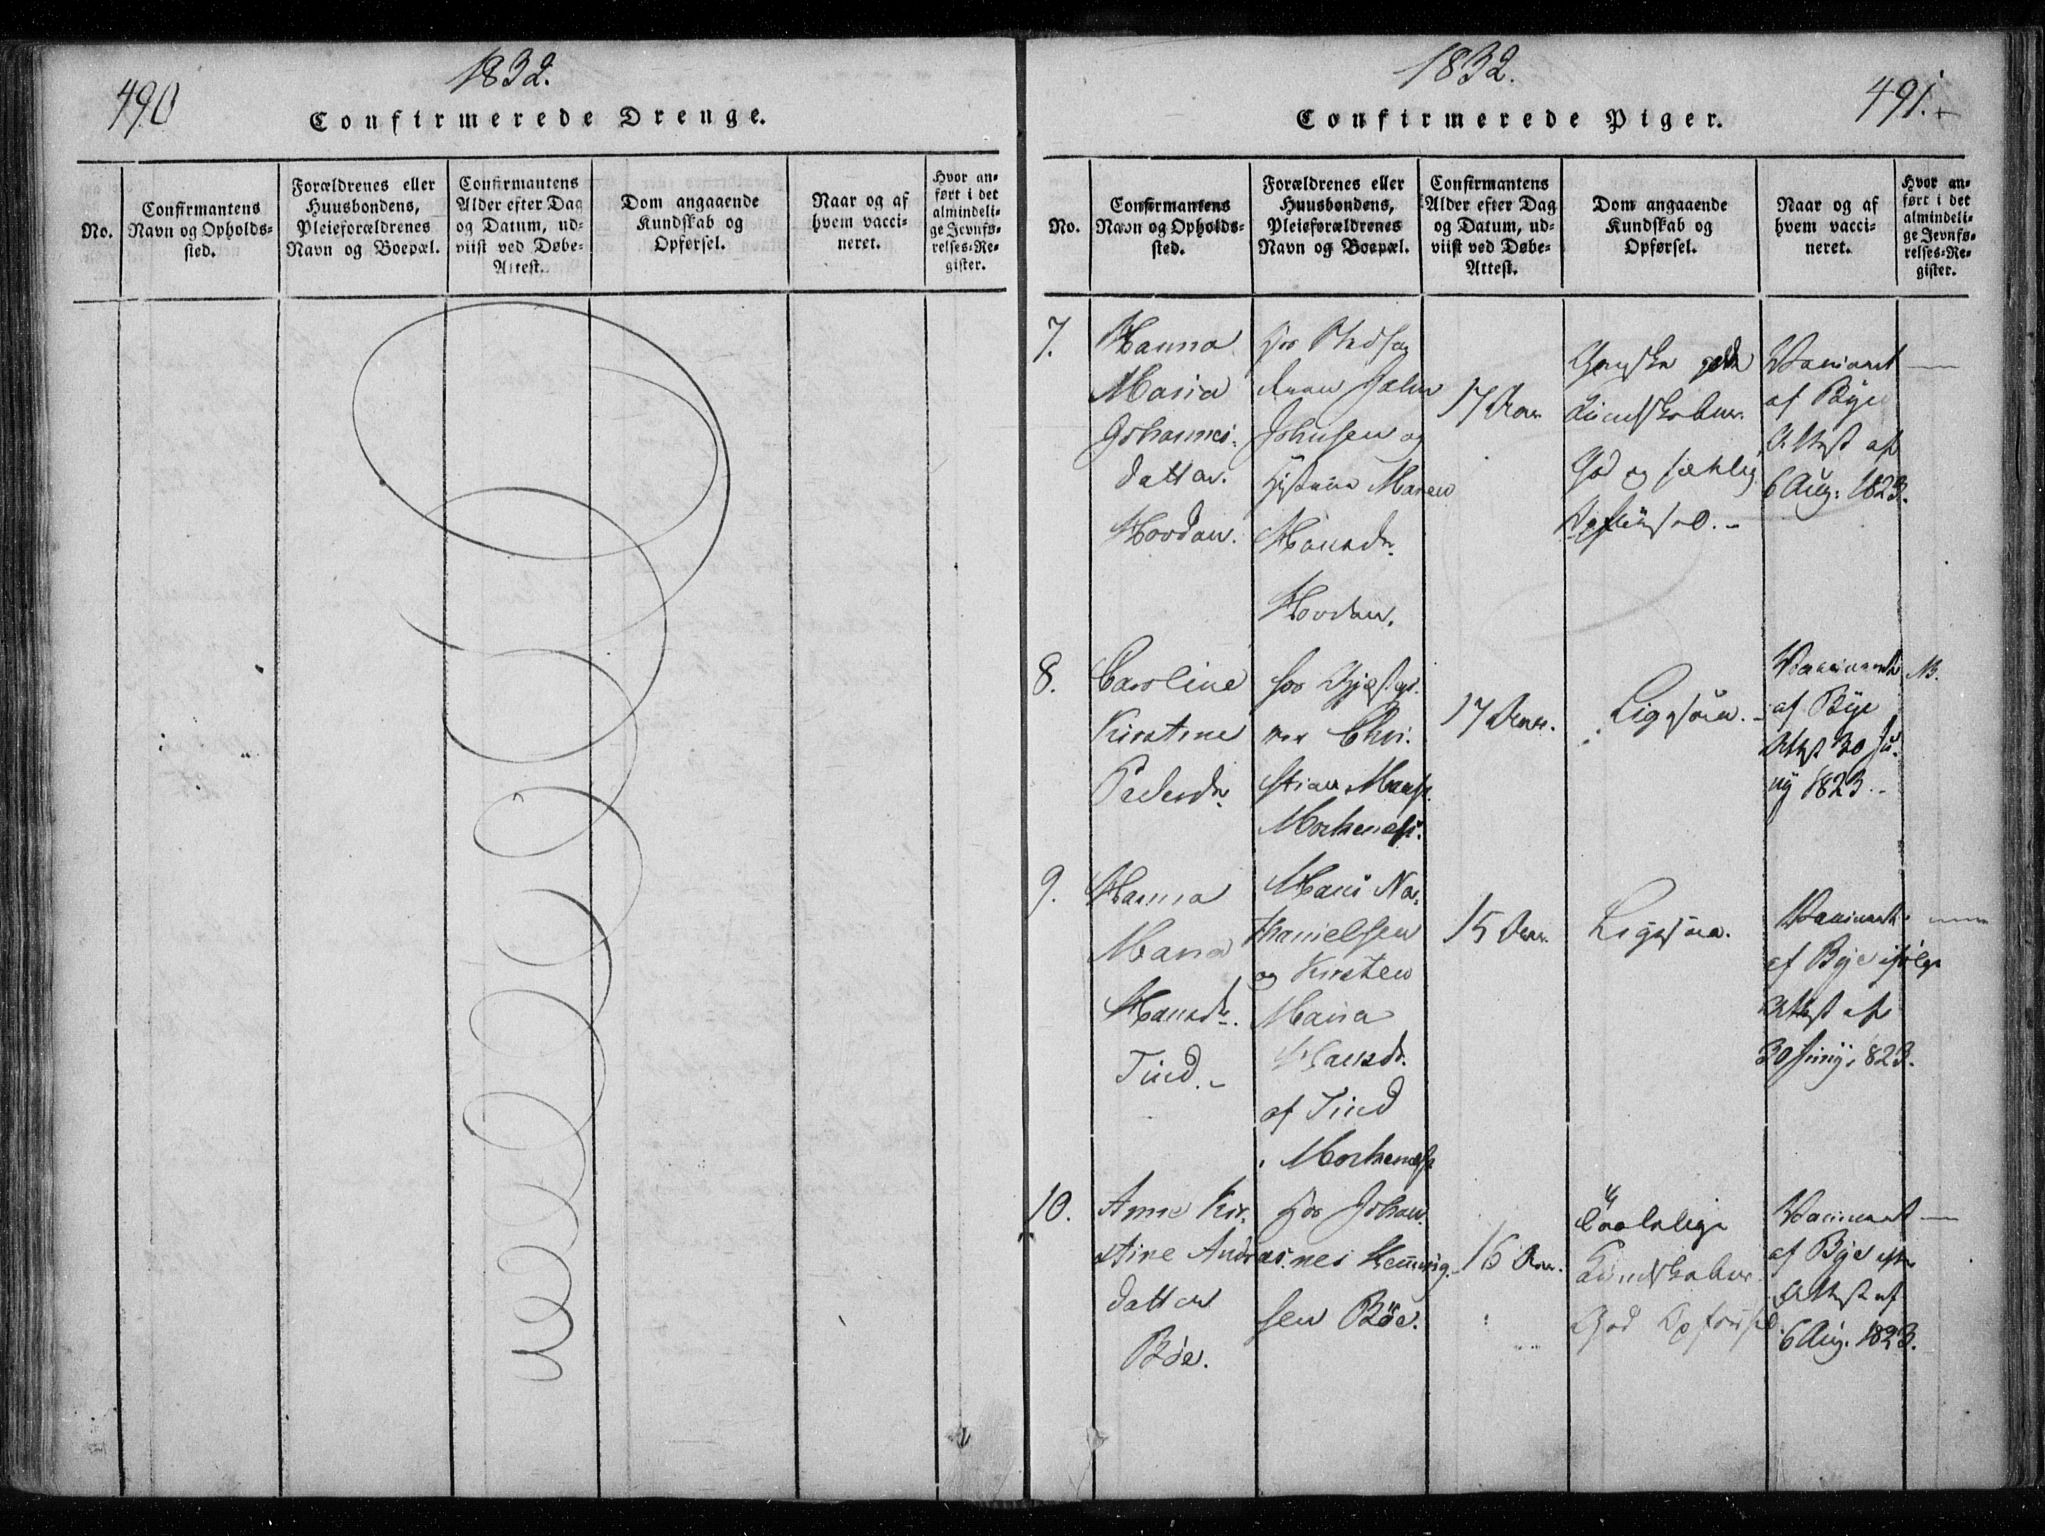 490
1832.
Confirmerede Drenge.
No.
Confirmantens
Navn og Opholds-
sted.
Forældrenes eller
Huusbondens,
Pleieforældrenes
Navn og Boepæl.
Confirmantens
Alder efter Dag
og Datum, ud-
viist ved Døbe-
Attest.
Dom angaaende
Kundskab og
Opførsel.
Naar og af
hvem vacci-
neret.
Hvor an-
ført i det
almindeli-
ge Jevnfø-
relses-Re-
gister.
1832.
491.
Confirmerede Piger.
No.
Confirmantens
Navn og Opholds-
sted.
Forældrenes eller
Huusbondens,
Pleieforældrenes
Navn og Boepæl.
Confirmantens
Alder efter Dag
og Datum, ud-
viist ved Døbe-
Attest.
Dom angaaende
Kundskab og
Opførsel.
Naar og af
hvem vacci-
neret.
Hvor an-
ført i det
almindeli-
ge Jevnfø-
relses-Re-
gister.
7.
Hanna
Maria
Johannes-
datter.
Hovden.
Johnsen og
Maren
Hansdr.
Hovden.
17
Ganske gode
Kundskaber.
God og sædelig
Opførsel.
Vaccineret
af Bye
Attest af
6 Aug. 1823.
8.
Caroline
Kirstine
Pedersdr.
hos
Chri-
stian
Morkenæss.
17
Ligesaa.
Vaccineret
af Bye
Attest 30 Ju-
ny 1823.
9.
Hanna
Maria
Hansdr.
Tind.
Hans Na-
thanielsen
og Kirsten
Maria
Hansdr.
af Tind
Morkenæss
15
Ligesaa.
Vaccineret
af Bye ifølge
Attest af
30 Juny 1823.
10.
Anne Kir-
stine Andreas-
datter
Bøe.
Johan-
nes Hemmig-
sen Bøe.
16
Kundskaber.
God Opførsel.
Vaccineret
af Bye efter
Attest af
6 Aug. 1823.